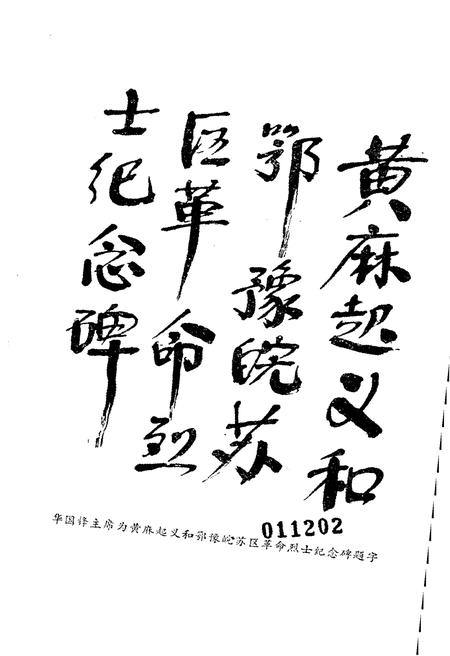 黄麻起义和
鄂豫皖苏
区革命烈
士纪念碑
011202
华国锋主席为黄麻起义和鄂豫皖苏区革命烈士纪念碑题字